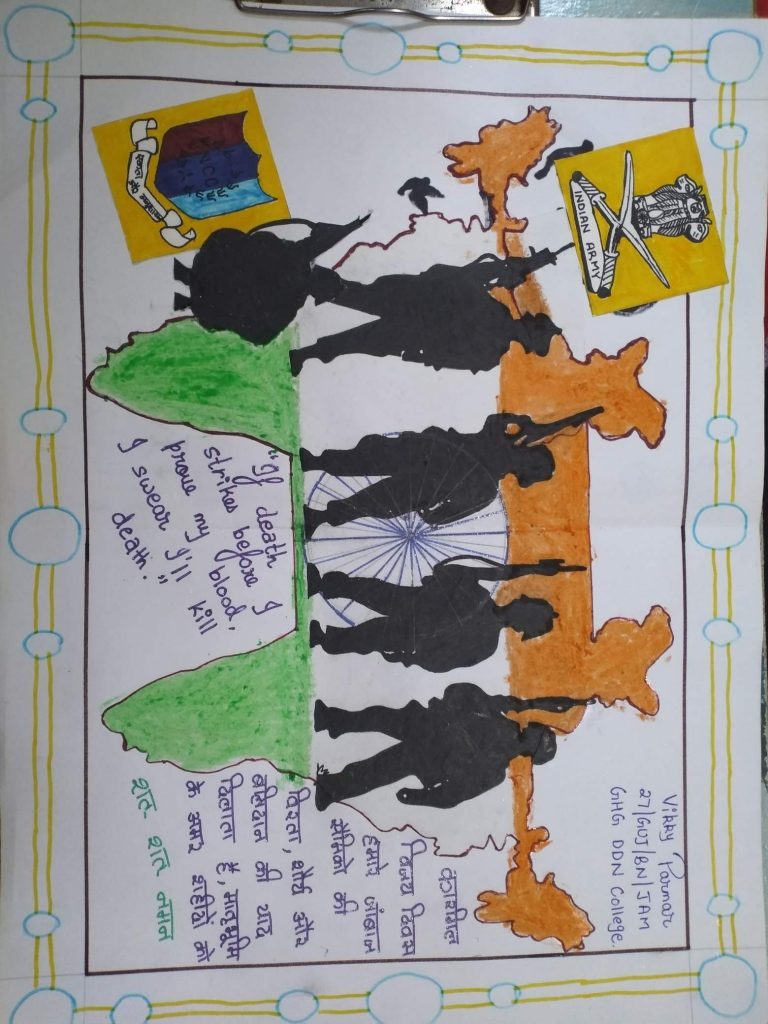 INDIAN ARMY
Vikky Parmar
27/GUJ/BN/JAM
GHG DDN College.
कारगिल
विजय दिवस
हमारे जांबाज
सैनिको की
विरता, शौर्य और
बलिदान की याद
दिलाता है, मातृभूमि
के अमर शहिदों को
शत- शत नमन
"If death
strikes before I
prove my blood,
I swear I'll kill
death."
NCC